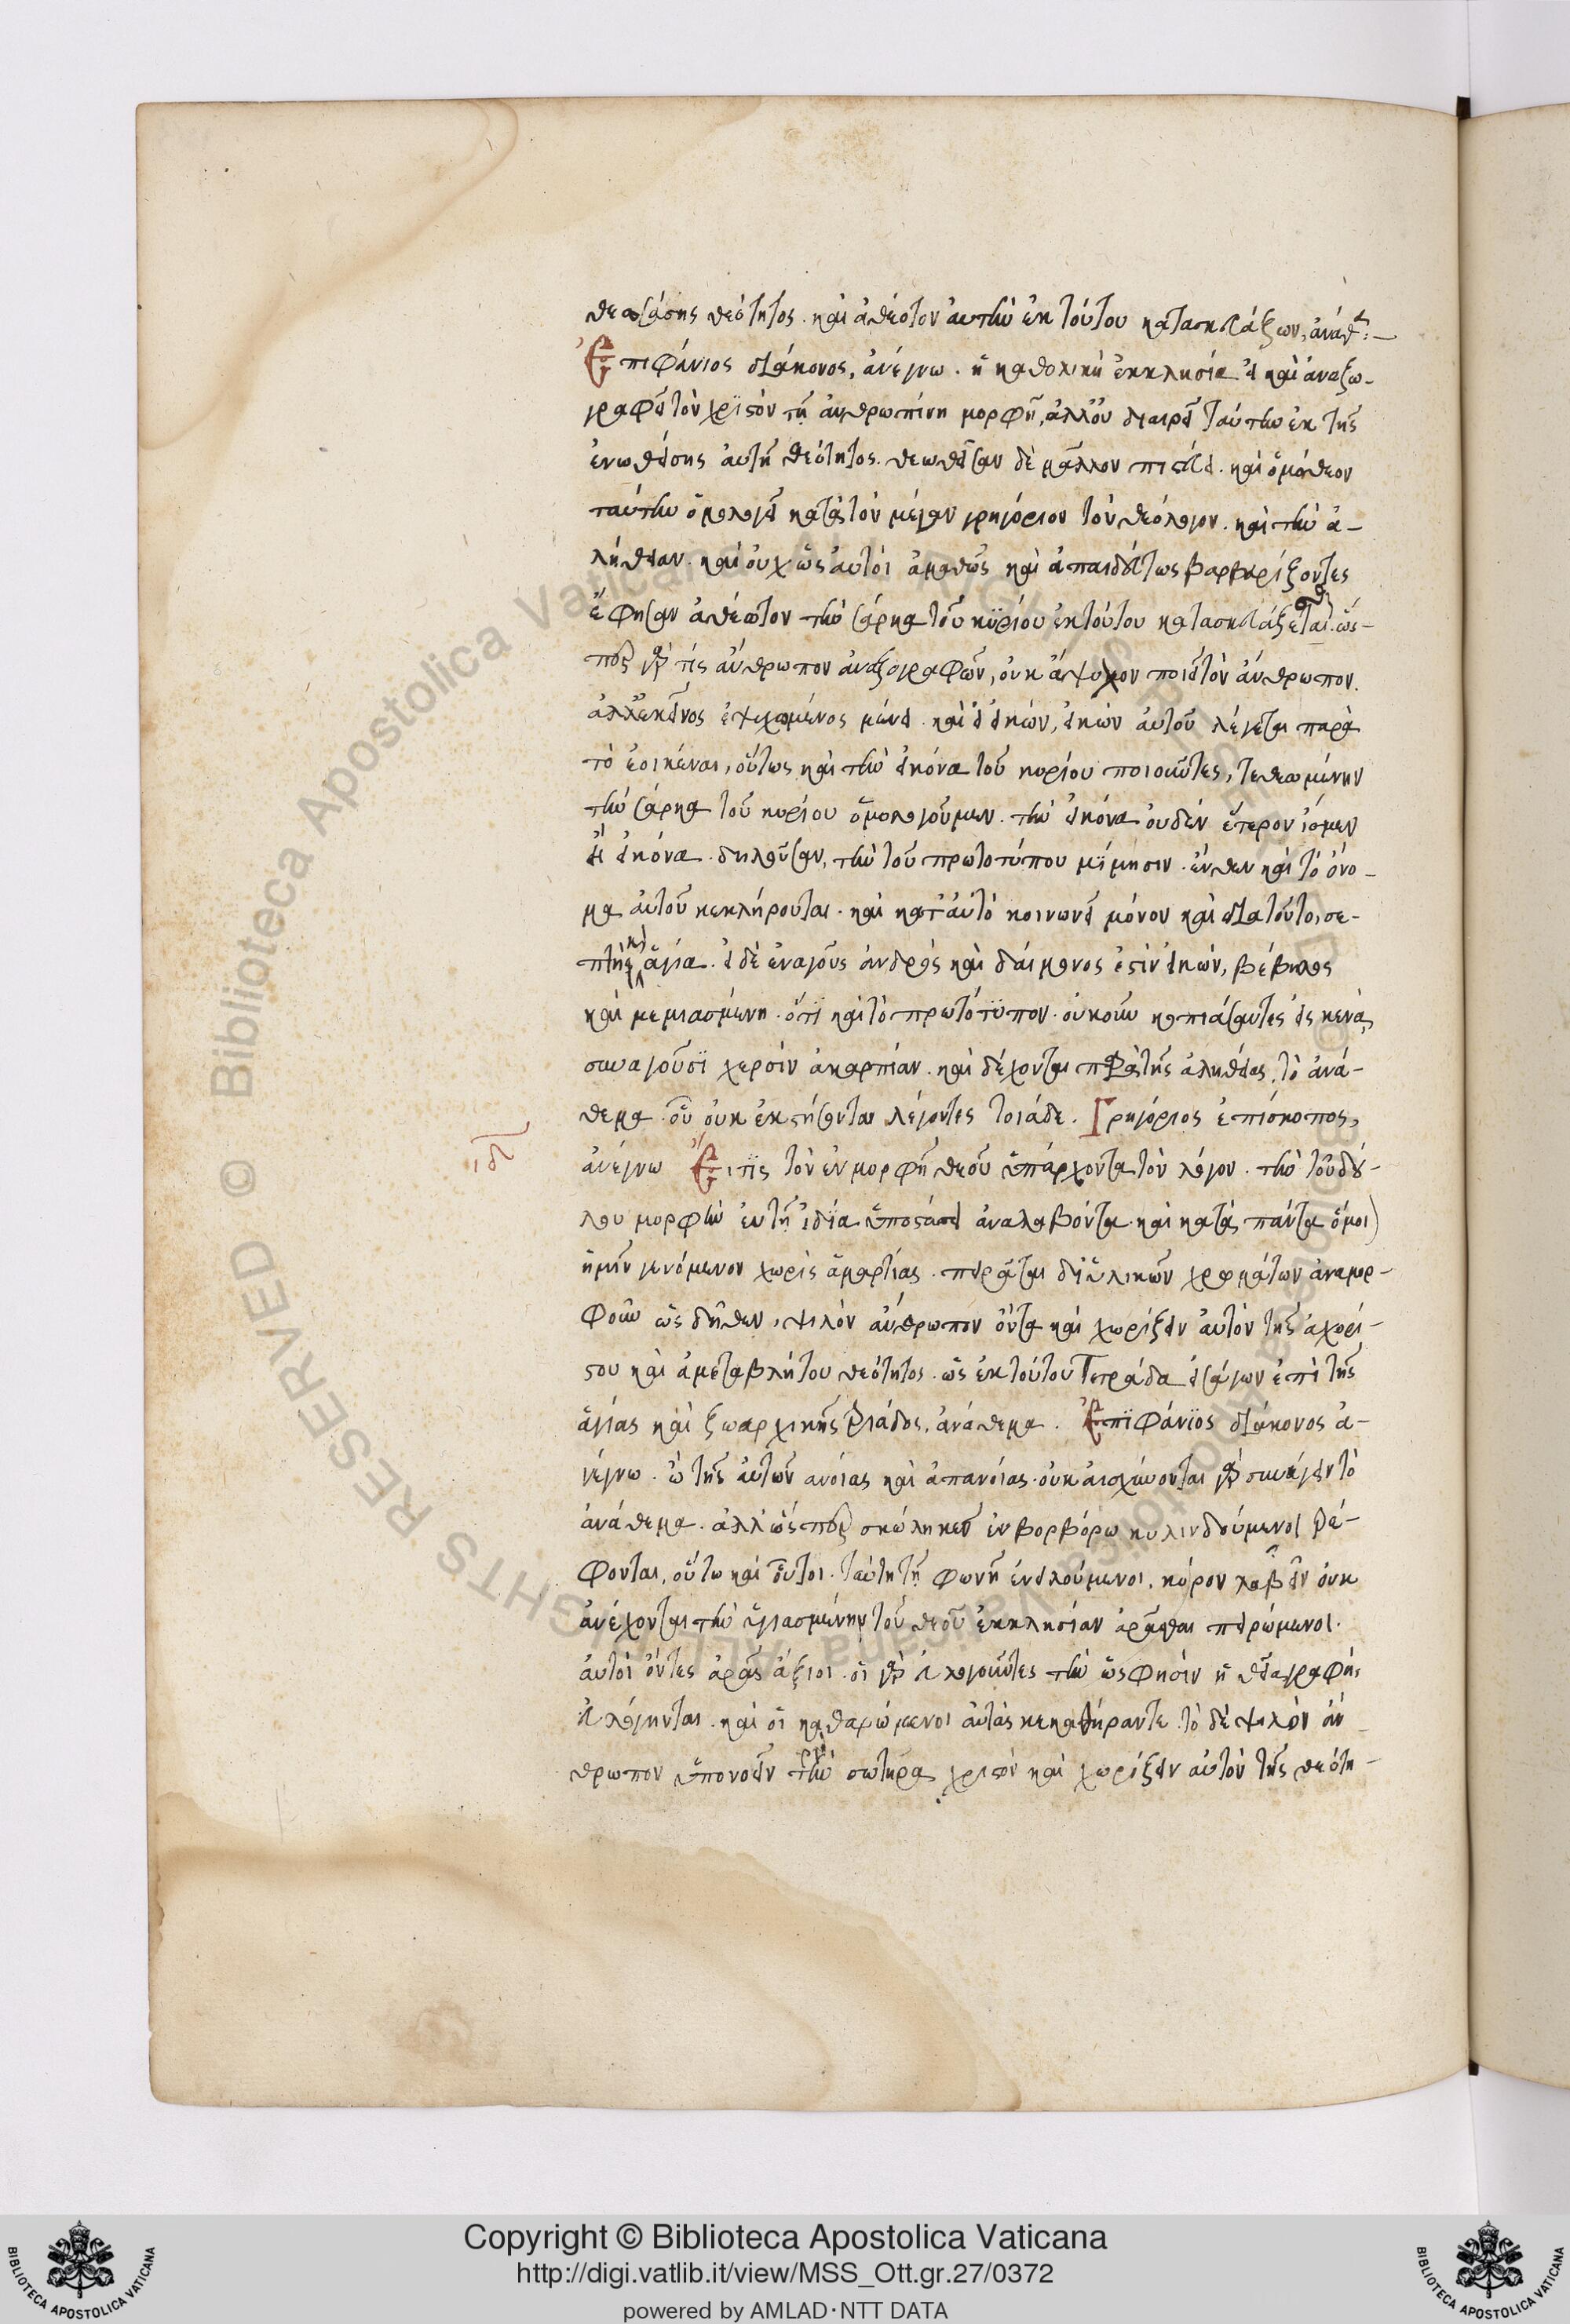 θεωσάσης θεότητος. καὶ ἀθέοτον ἀυτὴν ἐκ τούτου κατασκευάζων, ἀνάθεμα:—
Ἐπιφάνιος διάκονος, ἀνέγνω. ἡ καθολικὴ ἐκκλησία εἰ καὶ ἀναζω-
γραφεῖ τὸν χριστὸν τῇ ἀνθρωπίνη μορφῇ, ἀλλ' οὐ διαιρεῖ ταύτην ἐκ τῆς
ἑνωθείσης ἀυτῇ θεότητος. θεωθεῖσαν δὲ μᾶλλον πιστεύει. καὶ ὁμόθεον
ταύτην ὁμολογεῖ κατὰ τὸν μέγαν γρηγόριον τὸν θεόλογον. καὶ τὴν ἀ-
λήθειαν. καὶ οὐχ ὡς ἀυτοὶ ἀμαθῶς καὶ ἀπαιδεύτως βαρβαρίζοντες
ἔφησαν ἀθέωτον τὴν σάρκα τοῦ κυρίου ἐκ τούτου κατασκευάζεται. ὥσ-
περ γάρ τίς ἄνθρωπον ἀναζογραφῶν, οὐκ ἄψυχον ποιεῖ τὸν ἄνθρωπον.
ἀλλ' ἐκεῖνος ἐψυχομένος μένει. καὶ ἡ εἰκών, εἰκὼν ἀυτοῦ λέγεται παρὰ
τὸ ἐοικέναι, οὕτως καὶ τὴν εἰκόνα τοῦ κυρίου ποιοῦντες, τεθεωμένην
τὴν σάρκα τοῦ κυρίου ὁμολογοῦμεν. τὴν εἰκόνα οὐδὲν ἕτερον ἴσμεν
ἢ εἰκόνα. δηλοῦσαν, τὴν τοῦ πρωτοτύπου μίμησιν. ἔνθεν καὶ τὸ ὄνο-
μα ἀυτοῦ κεκλήρουται. καὶ κατ' ἀυτὸ κοινωνεῖ μόνον καὶ διὰ τοῦτο, σε-
πτὴ καὶ ἁγία. εἰ δὲ ἐναγοῦς ἀνδρὸς καὶ δαίμονος ἐστὶν εἰκών, βέβηλος
καὶ μεμιασμένη. ὅτι καὶ τὸ πρωτότυπον. οὐκοῦν κοπιάσαντες εἰς κενὰ,
συναγοῦσι χερσὶν ἀκαρπίαν. καὶ δέχονται παρὰ τῆς ἀληθείας, τὸ ἀνά-
θεμα. οὗ οὐκ ἐκστήσονται λέγοντες τοιάδε. Γρηγόριος ἐπίσκοπος,
ιδ
ἀνέγνω Εἴ τις τὸν ἐν μορφῇ θεοῦ ὑπάρχοντα τὸν λόγον. τὴν τοῦ δού-
λου μορφὴν ἐν τῇ ἰδία ὑποστάσει ἀναλαβόντα. καὶ κατὰ πάντα ὅμοι
ἡμῖν γενόμενον χωρὶς ἁμαρτίας. πειρᾶται δι' ὑλικῶν χρωμάτων ἀναμορ-
φοῦν ὡς δῆθεν, ψιλὸν ἄνθρωπον ὄντα καὶ χωρίζειν ἀυτὸν τῆς ἀχωρί-
στου καὶ ἀμεταβλήτου θεότητος. ὡς ἐκ τούτου τετράδα εἰσάγων ἐπὶ τῆς
ἁγίας καὶ ζωαρχικῆς τριάδος, ἀνάθεμα. Ἐπιφάνιος διάκονος ἀ-
νέγνω. ὢ τῆς ἀυτῶν ανοίας καὶ ἀπανοίας. οὐκ ἀισχύνονται γὰρ συνάγειν τὸ
ἀνάθεμα. ἀλλ' ὥσπερ σκώληκες ἐν βορβόρω κυλινδούμενοι τρέ-
φονται, οὕτω καὶ οὗτοι. ταύτη τῇ φωνῇ ἐνειλούμενοι, κόρον λαβεῖν οὐκ
ἀνέχονται τὴν ἡγιασμένην τοῦ θεοῦ ἐκκλησίαν ἀρᾶσθαι πειρώμενοι.
ἀυτοὶ ὄντες ἀρᾶς ἄξιοι. οἱ γὰρ εὐλογοῦντες τὴν ὥς φησὶν ἡ θεία γραφή,
εὐλόγηνται. καὶ οἱ καθαρώμενοι ἀυτὰς κεκατήρανται. τὸ δὲ ψιλὸν ἄν
θρωπον ὑπονοεῖν τὸν σωτῆρα χριστὸν καὶ χωρίζειν αὐτὸν τῆς θεότη-
Copyright © Biblioteca Apostolica Vaticana
http://digi.vatlib.it/view/MSS_Ott.gr.27/0372
powered by AMLAD·NTT DATA